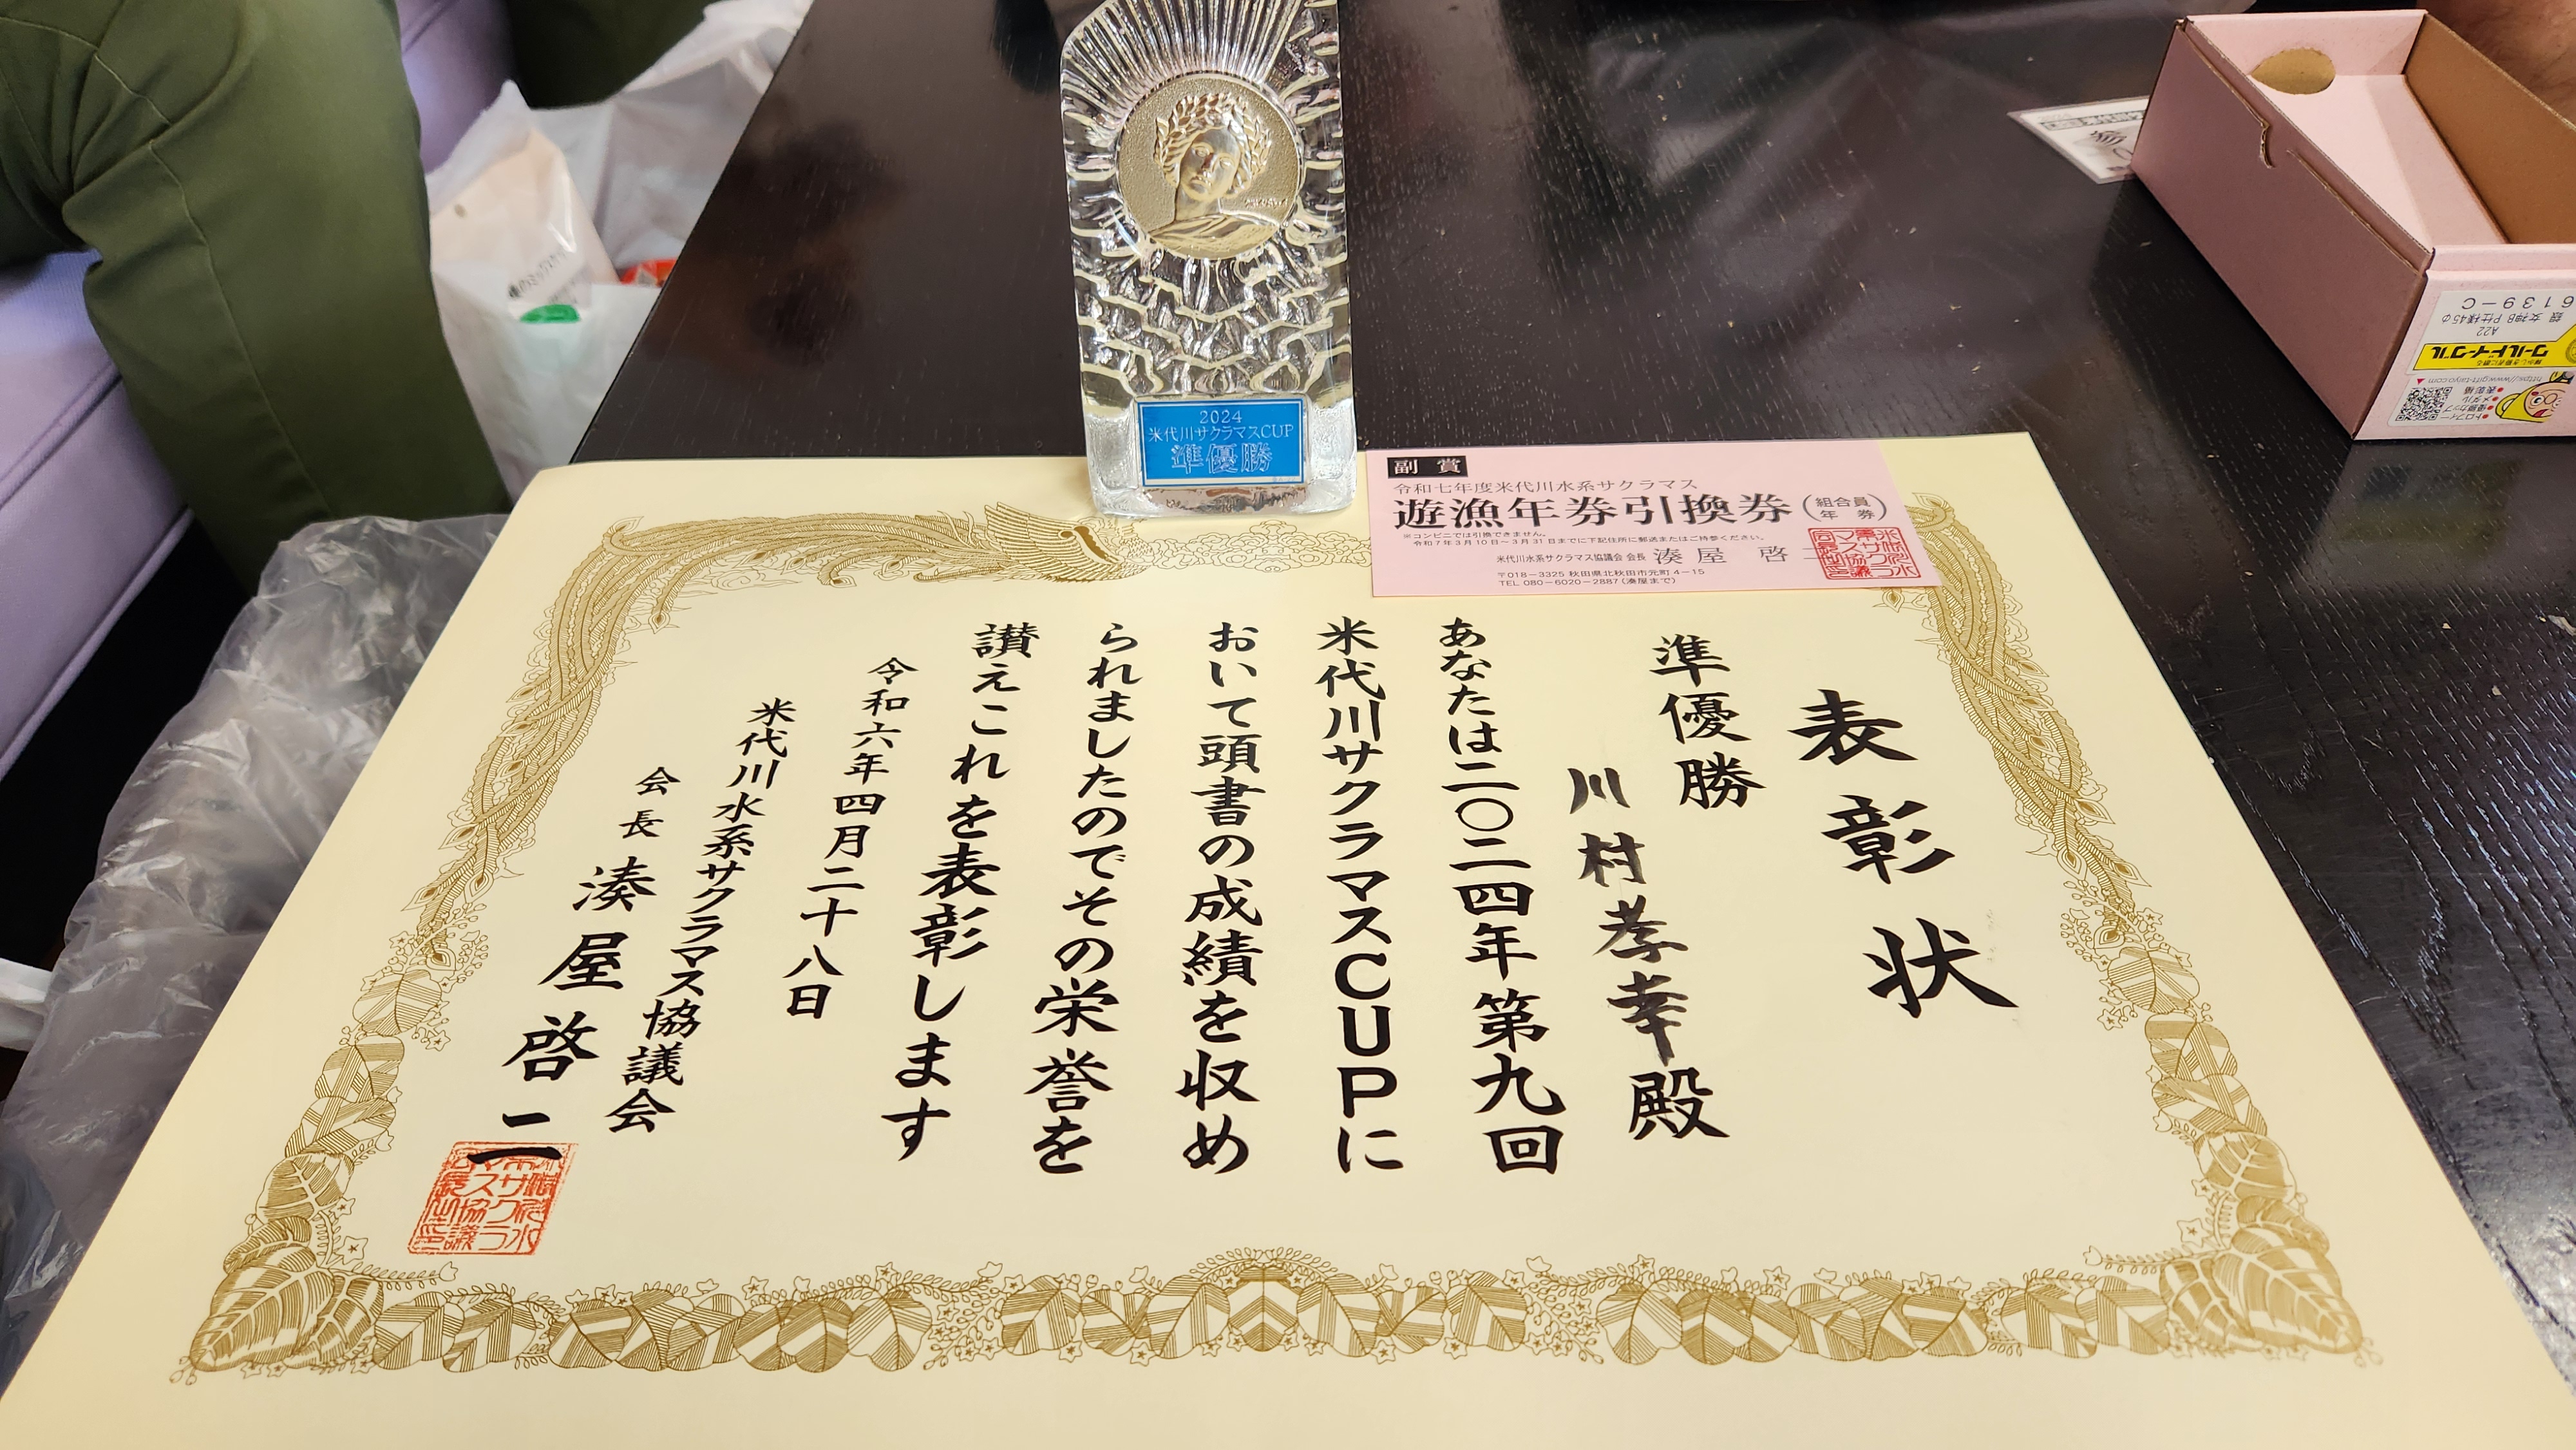 2024
米代川サクラマスCUP
準優勝
副賞
令和七年度米代川水系サクラマス
遊漁年券引換券(組合員年券)
※コンビニでは引換できません。
令和7年3月10日～3月31日までに下記住所に郵送またはご持参ください。
米代川水系サクラマス協議会 会長 湊屋 啓二
〒018-3325 秋田県北秋田市元町4-15
TEL 080-6020-2887(湊屋まで)
表彰状
準優勝
川村孝幸殿
あなたは二〇二四年第九回
米代川サクラマスCUPに
おいて頭書の成績を収め
られましたのでその栄誉を
讃えこれを表彰します
令和六年四月二十八日
米代川水系サクラマス協議会
会長 湊屋啓二
6139-C
銀 女神B P仕様45φ
A22
ワールドイーグル
https://www.gift-taiyo.com
●トロフィー
●優勝カップ
●メダル
●表彰楯